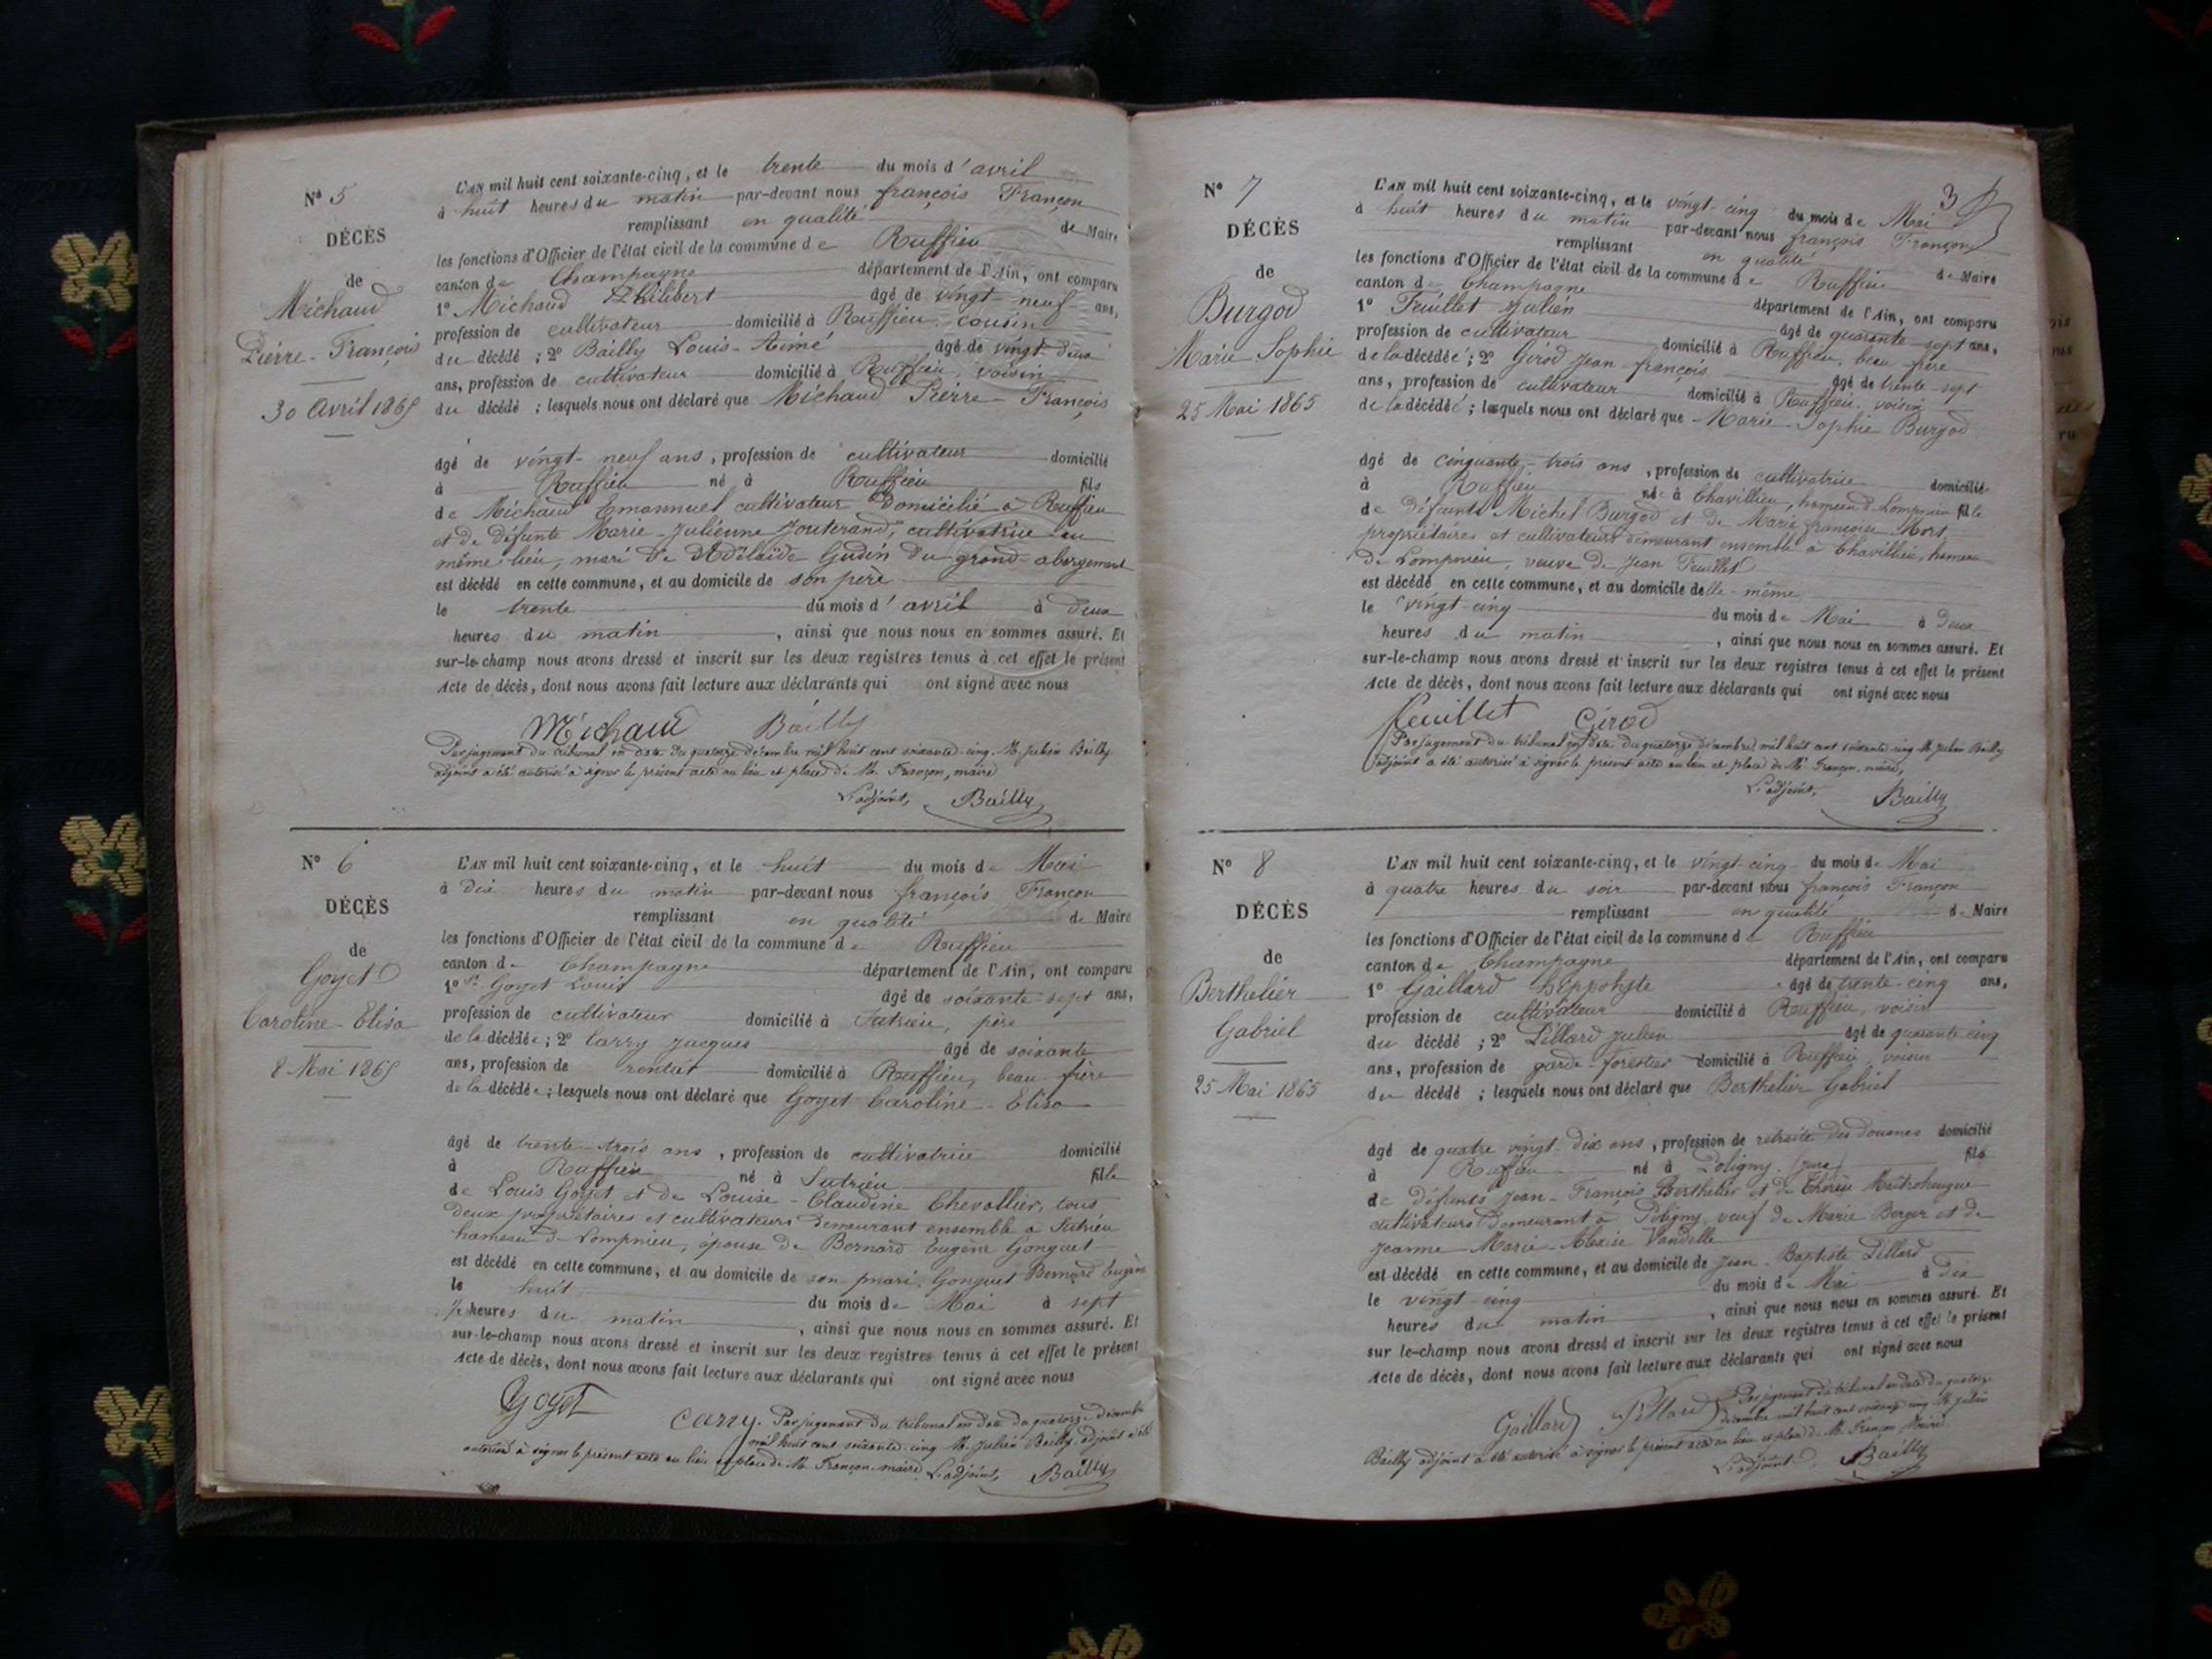 N° 5
DÉCÈS
de
Michaud
Pierre-François
30 Avril 1865
L'AN mil huit cent soixante-cinq, et le trente du mois d'avril
à huit heures du matin par-devant nous françois Françon
remplissant en qualité de Maire
les fonctions d'Officier de l'état civil de la commune de Ruffieu
canton de Champagne département de l'Ain, ont comparu
1° Michaud Philibert âgé de vingt-neuf ans,
profession de cultivateur domicilié à Ruffieu, cousin
du décédé ; 2° Bailly Louis-Aimé âgé de vingt deux
ans, profession de cultivateur domicilié à Ruffieu, voisin
du décédé ; lesquels nous ont déclaré que Michaud Pierre-François
âgé de vingt-neuf ans, profession de cultivateur domicilié
à Ruffieu né à Ruffieu fils
de Michaud Emannuel cultivateur domicilié à Ruffieu
et de défunte Marie-Julienne Jouterand, cultivatrice au
même lieu, mari de Adélaïde Gudin du grand-abergement
est décédé en cette commune, et au domicile de son père
le trente du mois d'avril à deux
heures du matin, ainsi que nous nous en sommes assuré. Et
sur-le-champ nous avons dressé et inscrit sur les deux registres tenus à cet effet le présent
Acte de décès, dont nous avons fait lecture aux déclarants qui ont signé avec nous
Michaud Bailly
Par jugement du tribunal en date du quatorze décembre mil huit cent soixante-cinq M. Julien Bailly
adjoint a été autorisé à signer le présent acte au lieu et place de M. Françon, maire
L'adjoint, Bailly
N° 6
DÉCÈS
de
Goyet
Caroline-Elisa
8 Mai 1865
L'AN mil huit cent soixante-cinq, et le huit du mois de Mai
à dix heures du matin par-devant nous françois Françon
remplissant en qualité de Maire
les fonctions d'Officier de l'état civil de la commune de Ruffieu
canton de Champagne département de l'Ain, ont comparu
1° Goyet Louis âgé de soixante-sept ans,
profession de cultivateur domicilié à Sutrieu, père
de la décédée ; 2° Carry Jacques âgé de soixante
ans, profession de rentier domicilié à Ruffieu, beau-frère
de la décédée ; lesquels nous ont déclaré que Goyet Caroline-Elisa
âgé de trente-trois ans, profession de cultivatrice domicilié
à Ruffieu né à Sutrieu fille
de Louis Goyet et de Louise-Claudine Chevallier, tous
deux propriétaires et cultivateurs demeurant ensemble à Sutrieu
hameau de Lompnieu, épouse de Bernard Eugène Gonguet
est décédé en cette commune, et au domicile de son mari, Gonguet Bernard Eugène
le huit du mois de Mai à sept
heures du matin, ainsi que nous nous en sommes assuré. Et
sur-le-champ nous avons dressé et inscrit sur les deux registres tenus à cet effet le présent
Acte de décès, dont nous avons fait lecture aux déclarants qui ont signé avec nous
Goyet
Carry. Par jugement du tribunal en date du quatorze décembre
mil huit cent soixante-cinq M. Julien Bailly adjoint a été
autorisé à signer le présent acte au lieu et place de M. Françon maire L'adjoint, Bailly
3
N° 7
DÉCÈS
de
Burgod
Marie-Sophie
25 Mai 1865
L'AN mil huit cent soixante-cinq, et le vingt-cinq du mois de Mai
à huit heures du matin par-devant nous françois Françon
remplissant en qualité de Maire
les fonctions d'Officier de l'état civil de la commune de Ruffieu
canton de Champagne département de l'Ain, ont comparu
1° Feuillet Julien âgé de quarante sept ans,
profession de cultivateur domicilié à Ruffieu, beau-frère
de la décédée ; 2° Girod Jean-françois âgé de trente-sept
ans, profession de cultivateur domicilié à Ruffieu, voisin
de la décédée ; lesquels nous ont déclaré que Marie-Sophie Burgod
âgé de cinquante-trois ans, profession de cultivatrice domicilié
à Ruffieu née à Chavillieu, hameau de Lompnieu fille
de défunts Michel Burgod et de Marie françoise Mort,
propriétaires et cultivateurs demeurant ensemble à Chavillieu, hameau
de Lompnieu, veuve de Jean Feuillet
est décédé en cette commune, et au domicile d'elle-même
le vingt-cinq du mois de Mai à deux
heures du matin, ainsi que nous nous en sommes assuré. Et
sur-le-champ nous avons dressé et inscrit sur les deux registres tenus à cet effet le présent
Acte de décès, dont nous avons fait lecture aux déclarants qui ont signé avec nous
feuillet Girod
Par jugement du tribunal en date du quatorze décembre mil huit cent soixante cinq M. Julien Bailly
adjoint a été autorisé à signer le présent acte au lieu et place de M. Françon, maire,
L'adjoint, Bailly
N° 8
DÉCÈS
de
Berthelier
Gabriel
25 Mai 1865
L'AN mil huit cent soixante-cinq, et le vingt-cinq du mois de Mai
à quatre heures du soir par-devant nous françois Françon
remplissant en qualité de Maire
les fonctions d'Officier de l'état civil de la commune de Ruffieu
canton de Champagne département de l'Ain, ont comparu
1° Gaillard Hippohyte âgé de trente-cinq ans,
profession de cultivateur domicilié à Ruffieu, voisin
du décédé ; 2° Pillard Julien âgé de quarante cinq
ans, profession de garde-forestier domicilié à Ruffieu, voisin
du décédé ; lesquels nous ont déclaré que Berthelier Gabriel
âgé de quatre vingt-dix ans, profession de retraité des douanes domicilié
à Ruffieu né à Poligny (jura) fils
de défunts Jean-François Berthelier et de Thérèse
cultivateurs demeurant à Poligny, veuf de Marie Berger et de
Jeanne-Marie-Alexise Vandelle
est décédé en cette commune, et au domicile de Jean-Baptiste Pillard
le vingt cinq du mois de Mai à dix
heures du matin, ainsi que nous nous en sommes assuré. Et
sur le-champ nous avons dressé et inscrit sur les deux registres tenus à cet effet le présent
Acte de décès, dont nous avons fait lecture aux déclarants qui ont signé avec nous
Gaillard Pillard Par jugement du tribunal en date du quatorze
décembre mil huit cent soixante cinq M. Julien
Bailly adjoint a été autorisé à signer le présent acte au lieu et place de M. Françon Maire
L'adjoint, Bailly